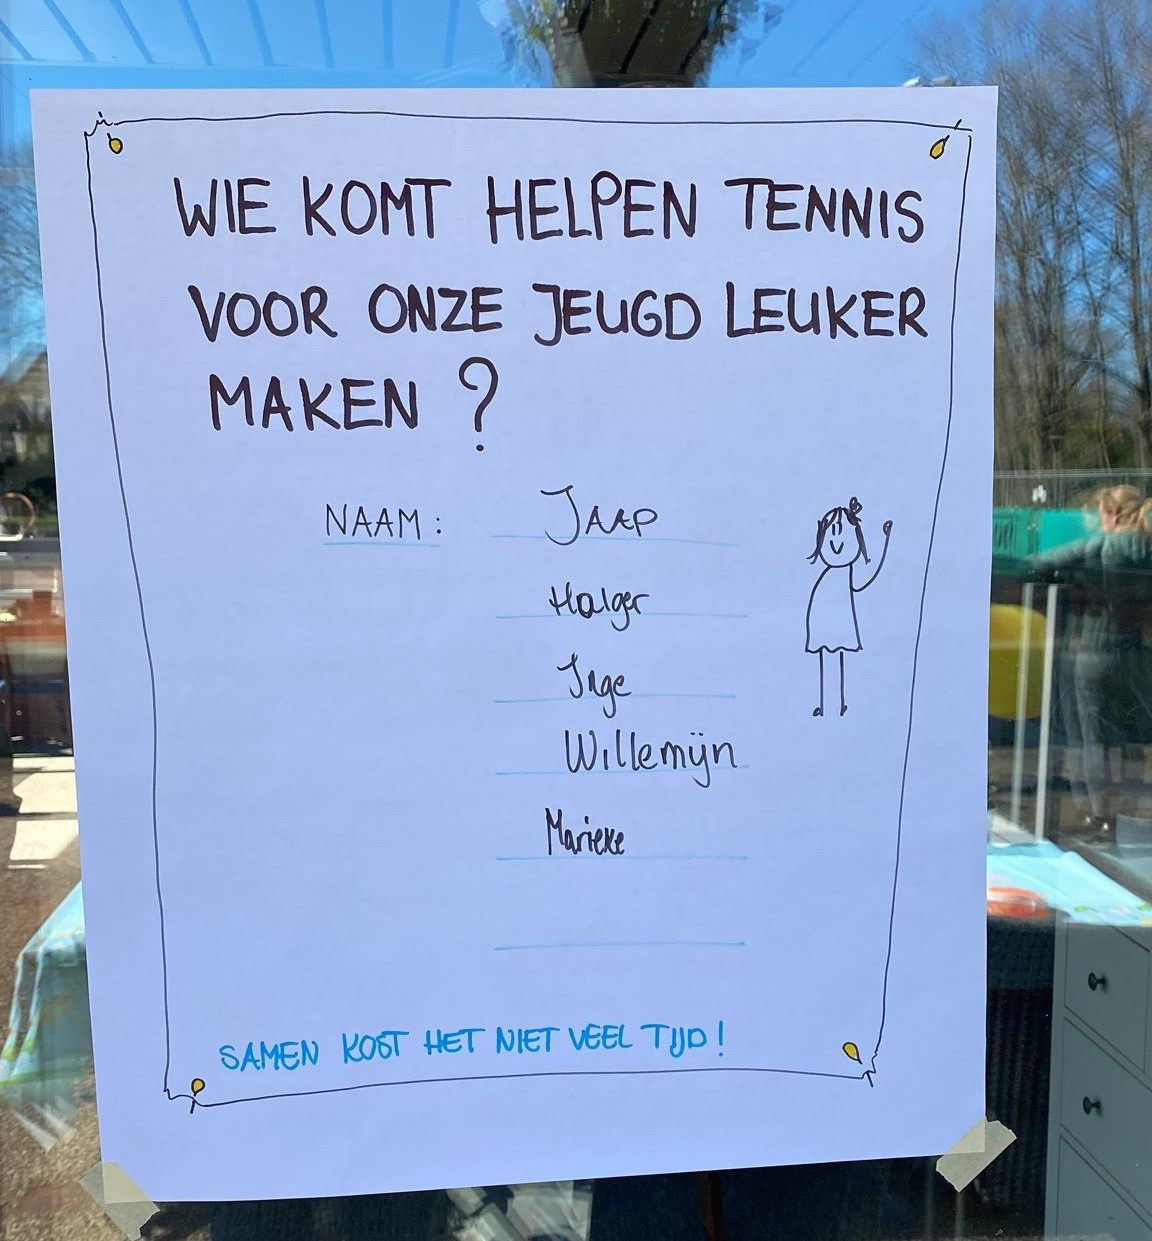 WIE KOMT HELPEN TENNIS
VOOR ONZE JEUGD LEUKER
MAKEN ?
NAAM: JAAP
Holger
Inge
Willemijn
Marieke
SAMEN KOST HET NIET VEEL TIJD!